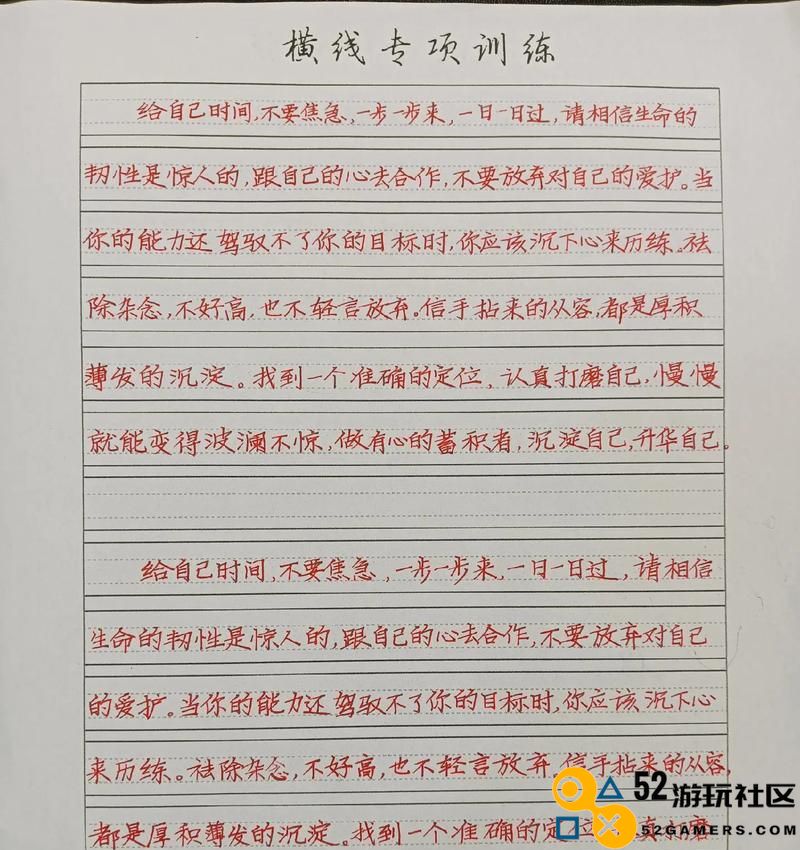 横线专项训练
给自己时间,不要焦急,一步一步来,一日一日过,请相信生命的
韧性是惊人的,跟自己的心去合作,不要放弃对自己的爱护。当
你的能力还驾驭不了你的目标时,你应该沉下心来历练。祛
除杂念,不好高,也不轻言放弃。信手拈来的从容,都是厚积
薄发的沉淀。找到一个准确的定位,认真打磨自己,慢慢
就能变得波澜不惊,做有心的蓄积者,沉淀自己,升华自己。
给自己时间,不要焦急,一步一步来,一日一日过,请相信
生命的韧性是惊人的,跟自己的心去合作,不要放弃对自己
的爱护。当你的能力还驾驭不了你的目标时,你应该沉下心
来历练。祛除杂念,不好高,也不轻言放弃,信手拈来的从容,
都是厚积薄发的沉淀。找到一个准确的定位 真打磨
52游玩社区
52GAMERS.COM